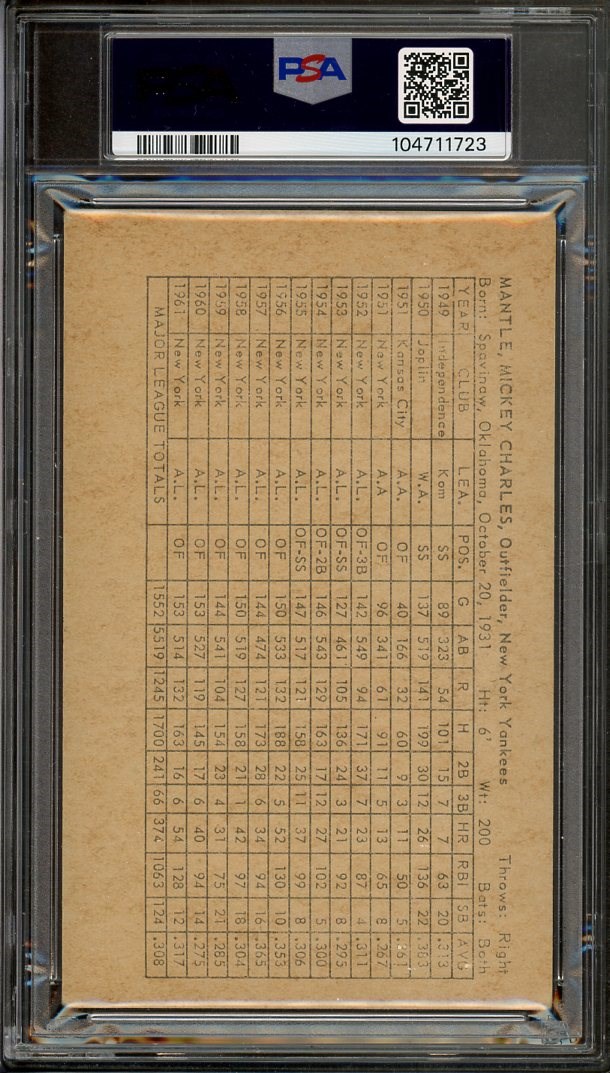 PSA
104711723
MANTLE, MICKEY CHARLES, Outfielder, New York Yankees Throws: Right
Born: Spavinaw, Oklahoma, October 20, 1931 Ht: 6' Wt: 200 Bats: Both
YEAR CLUB LEA. POS. G AB R H 2B 3B HR RBI SB AVG
1949 Independence Kom SS 89 323 54 101 15 7 7 63 20 .313
1950 Joplin W.A. SS 137 519 141 199 30 12 26 136 22 .383
1951 Kansas City A.A. OF 40 166 32 60 9 3 11 50 5 .361
1951 New York A.A OF 96 341 61 91 11 5 13 65 8 .267
1952 New York A.L. OF-3B 142 549 94 171 37 7 23 87 4 .311
1953 New York A.L. OF-SS 127 461 105 136 24 3 21 92 8 .295
1954 New York A.L. OF-2B 146 543 129 163 17 12 27 102 5 .300
1955 New York A.L. OF-SS 147 517 121 158 25 11 37 99 8 .306
1956 New York A.L. OF 150 533 132 188 22 5 52 130 10 .353
1957 New York A.L. OF 144 474 121 173 28 6 34 94 16 .365
1958 New York A.L. OF 150 519 127 158 21 1 42 97 18 .304
1959 New York A.L. OF 144 541 104 154 23 4 31 75 21 .285
1960 New York A.L. OF 153 527 119 145 17 6 40 94 14 .275
1961 New York A.L. OF 153 514 132 163 16 6 54 128 12 .317
MAJOR LEAGUE TOTALS 1552 5519 1245 1700 241 66 374 1063 124 .308